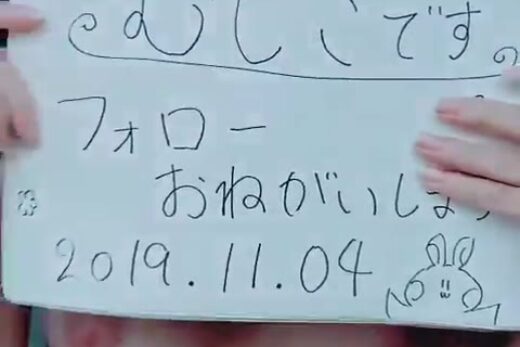 です。
フォロー
おねがいしま
2019.11.04